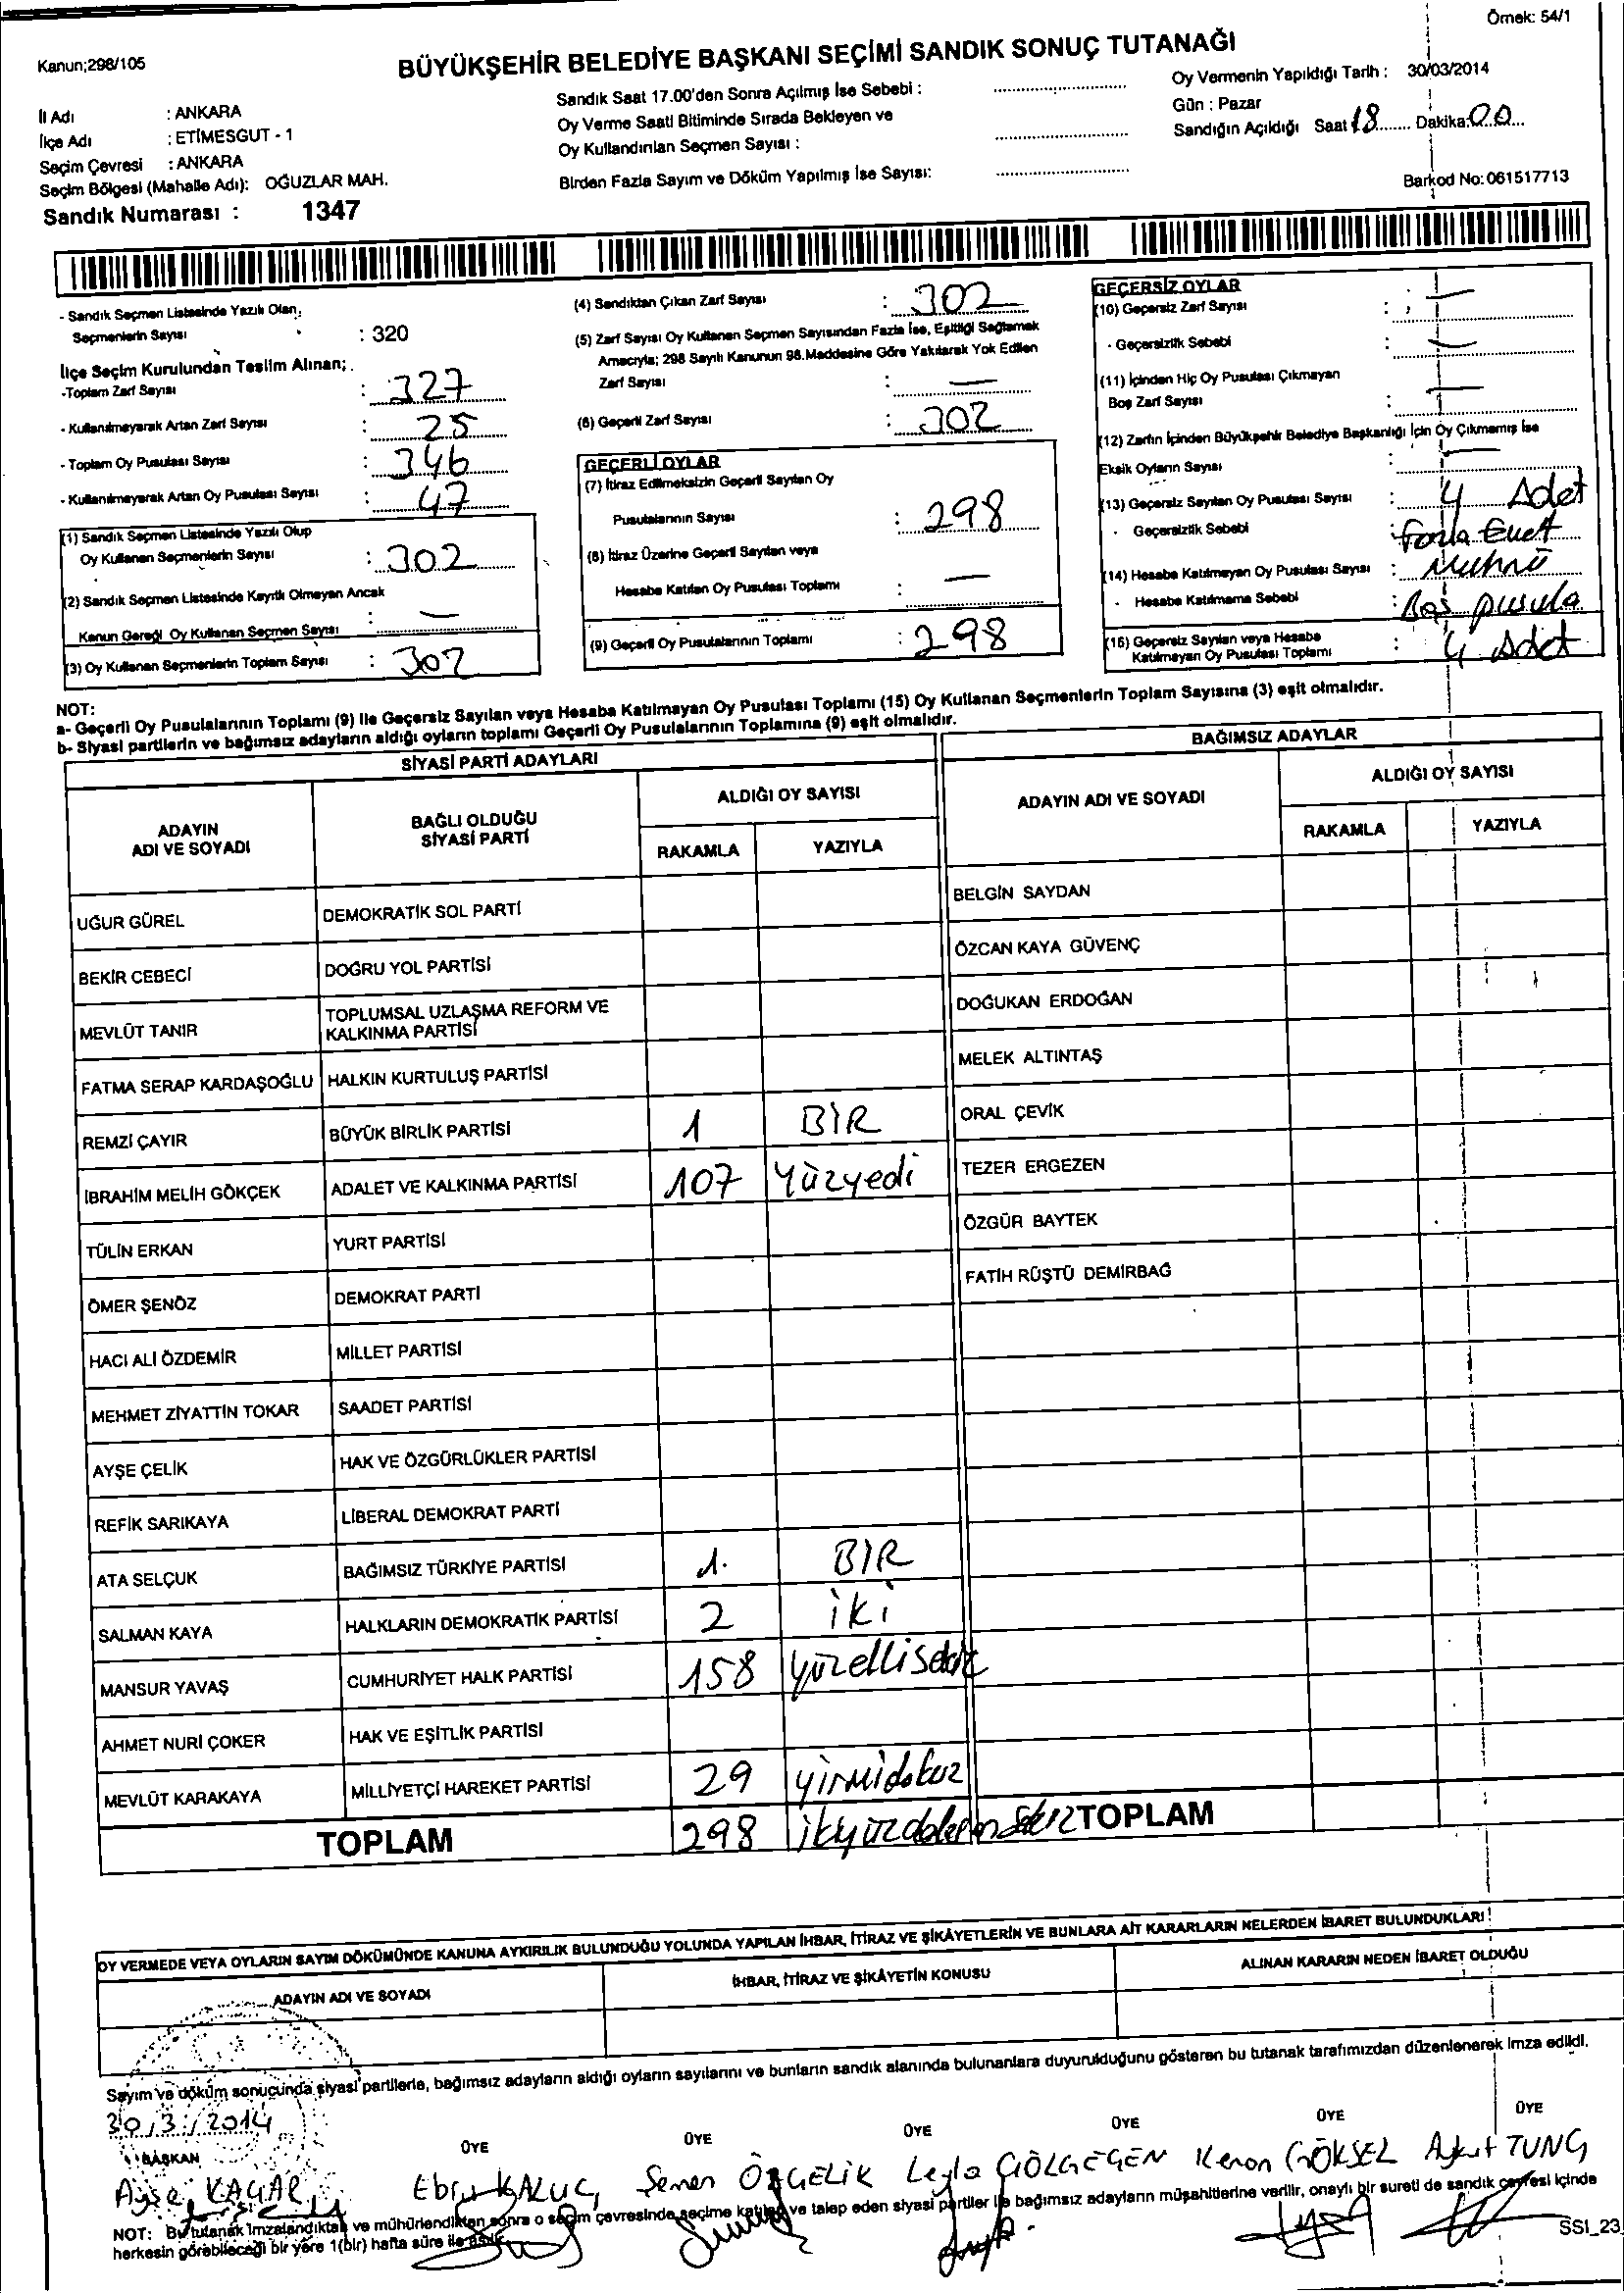 Örnek: 54/1
Kanun;298/105
BÜYÜKŞEHİR BELEDİYE BAŞKANI SEÇİMİ SANDIK SONUÇ TUTANAĞI
İl Adı : ANKARA
İlçe Adı : ETİMESGUT - 1
Seçim Çevresi : ANKARA
Seçim Bölgesi (Mahalle Adı): OĞUZLAR MAH.
Sandık Numarası : 1347
Sandık Saat 17.00'den Sonra Açılmış İse Sebebi :
Oy Verme Saati Bitiminde Sırada Bekleyen ve
Oy Kullandırılan Seçmen Sayısı :
Birden Fazla Sayım ve Döküm Yapılmış İse Sayısı:
Oy Vermenin Yapıldığı Tarih : 30/03/2014
Gün : Pazar
Sandığın Açıldığı Saat 18 Dakika: 00
Barkod No: 061517713
- Sandık Seçmen Listesinde Yazılı Olan,
Seçmenlerin Sayısı : 320
İlçe Seçim Kurulundan Teslim Alınan;
-Toplam Zarf Sayısı : 327
- Kullanılmayarak Artan Zarf Sayısı : 25
- Toplam Oy Pusulası Sayısı : 346
- Kullanılmayarak Artan Oy Pusulası Sayısı : 47
(1) Sandık Seçmen Listesinde Yazılı Olup
Oy Kullanan Seçmenlerin Sayısı : 302
(2) Sandık Seçmen Listesinde Kayıtlı Olmayan Ancak
Kanun Gereği Oy Kullanan Seçmen Sayısı : —
(3) Oy Kullanan Seçmenlerin Toplam Sayısı : 302
(4) Sandıktan Çıkan Zarf Sayısı : 302
(5) Zarf Sayısı Oy Kullanan Seçmen Sayısından Fazla İse, Eşitliği Sağlamak
Amacıyla; 298 Sayılı Kanunun 98.Maddesine Göre Yakılarak Yok Edilen
Zarf Sayısı : —
(6) Geçerli Zarf Sayısı : 302
GEÇERLİ OYLAR
(7) İtiraz Edilmeksizin Geçerli Sayılan Oy
Pusulalarının Sayısı : 298
(8) İtiraz Üzerine Geçerli Sayılan veya
Hesaba Katılan Oy Pusulası Toplamı : —
(9) Geçerli Oy Pusulalarının Toplamı : 298
GEÇERSİZ OYLAR
(10) Geçersiz Zarf Sayısı : —
- Geçersizlik Sebebi : —
(11) İçinden Hiç Oy Pusulası Çıkmayan
Boş Zarf Sayısı : —
(12) Zarfın İçinden Büyükşehir Belediye Başkanlığı İçin Oy Çıkmamış İse
Eksik Oyların Sayısı : —
(13) Geçersiz Sayılan Oy Pusulası Sayısı : 4 Adet
- Geçersizlik Sebebi : Fazla Evet
(14) Hesaba Katılmayan Oy Pusulası Sayısı : Mührü
- Hesaba Katılmama Sebebi : Boş pusula
(15) Geçersiz Sayılan veya Hesaba
Katılmayan Oy Pusulası Toplamı : 4 Adet
NOT:
a- Geçerli Oy Pusulalarının Toplamı (9) ile Geçersiz Sayılan veya Hesaba Katılmayan Oy Pusulası Toplamı (15) Oy Kullanan Seçmenlerin Toplam Sayısına (3) eşit olmalıdır.
b- Siyasi partilerin ve bağımsız adayların aldığı oyların toplamı Geçerli Oy Pusulalarının Toplamına (9) eşit olmalıdır.
SİYASİ PARTİ ADAYLARI
ADAYIN ADI VE SOYADI BAĞLI OLDUĞU SİYASİ PARTİ ALDIĞI OY SAYISI
RAKAMLA YAZIYLA
UĞUR GÜREL DEMOKRATİK SOL PARTİ
BEKİR CEBECİ DOĞRU YOL PARTİSİ
MEVLÜT TANIR TOPLUMSAL UZLAŞMA REFORM VE KALKINMA PARTİSİ
FATMA SERAP KARDAŞOĞLU HALKIN KURTULUŞ PARTİSİ
REMZİ ÇAYIR BÜYÜK BİRLİK PARTİSİ 1 BİR
İBRAHİM MELİH GÖKÇEK ADALET VE KALKINMA PARTİSİ 107 Yüzyedi
TÜLİN ERKAN YURT PARTİSİ
ÖMER ŞENÖZ DEMOKRAT PARTİ
HACI ALİ ÖZDEMİR MİLLET PARTİSİ
MEHMET ZİYATTİN TOKAR SAADET PARTİSİ
AYŞE ÇELİK HAK VE ÖZGÜRLÜKLER PARTİSİ
REFİK SARIKAYA LİBERAL DEMOKRAT PARTİ
ATA SELÇUK BAĞIMSIZ TÜRKİYE PARTİSİ 1. BIR
SALMAN KAYA HALKLARIN DEMOKRATİK PARTİSİ 2 iki
MANSUR YAVAŞ CUMHURİYET HALK PARTİSİ 158 yüzellisekiz
AHMET NURİ ÇOKER HAK VE EŞİTLİK PARTİSİ
MEVLÜT KARAKAYA MİLLİYETÇİ HAREKET PARTİSİ 29 yirmidokuz
TOPLAM 298
BAĞIMSIZ ADAYLAR
ADAYIN ADI VE SOYADI ALDIĞI OY SAYISI
RAKAMLA YAZIYLA
BELGİN SAYDAN
ÖZCAN KAYA GÜVENÇ
DOĞUKAN ERDOĞAN
MELEK ALTINTAŞ
ORAL ÇEVİK
TEZER ERGEZEN
ÖZGÜR BAYTEK
FATİH RÜŞTÜ DEMİRBAĞ
TOPLAM
OY VERMEDE VEYA OYLARIN SAYIM DÖKÜMÜNDE KANUNA AYKIRILIK BULUNDUĞU YOLUNDA YAPILAN İHBAR, İTİRAZ VE ŞİKÂYETLERİN VE BUNLARA AİT KARARLARIN NELERDEN İBARET BULUNDUKLARI
ADAYIN ADI VE SOYADI İHBAR, İTİRAZ VE ŞİKÂYETİN KONUSU ALINAN KARARIN NEDEN İBARET OLDUĞU
Sayım ve döküm sonucunda siyasi partilerle, bağımsız adayların aldığı oyların sayılarını ve bunların sandık alanında bulunanlara duyurulduğunu gösteren bu tutanak tarafımızdan düzenlenerek imza edildi.
30/3/2014
BAŞKAN ÜYE ÜYE ÜYE ÜYE ÜYE ÜYE
Ayşe KAÇAR Ebru KALUÇ Senen ÖZÇELİK Leyla GÖLGEÇEN Kenan GÖKSEL Aykut TUNÇ
NOT: Bu tutanak imzalandıktan ve mühürlendikten sonra o seçim çevresinde seçime katılan ve talep eden siyasi partiler ile bağımsız adayların müşahitlerine verilir, onaylı bir sureti de sandık çevresi içinde
herkesin görebileceği bir yere 1(bir) hafta süre ile asılır.
SSI_23